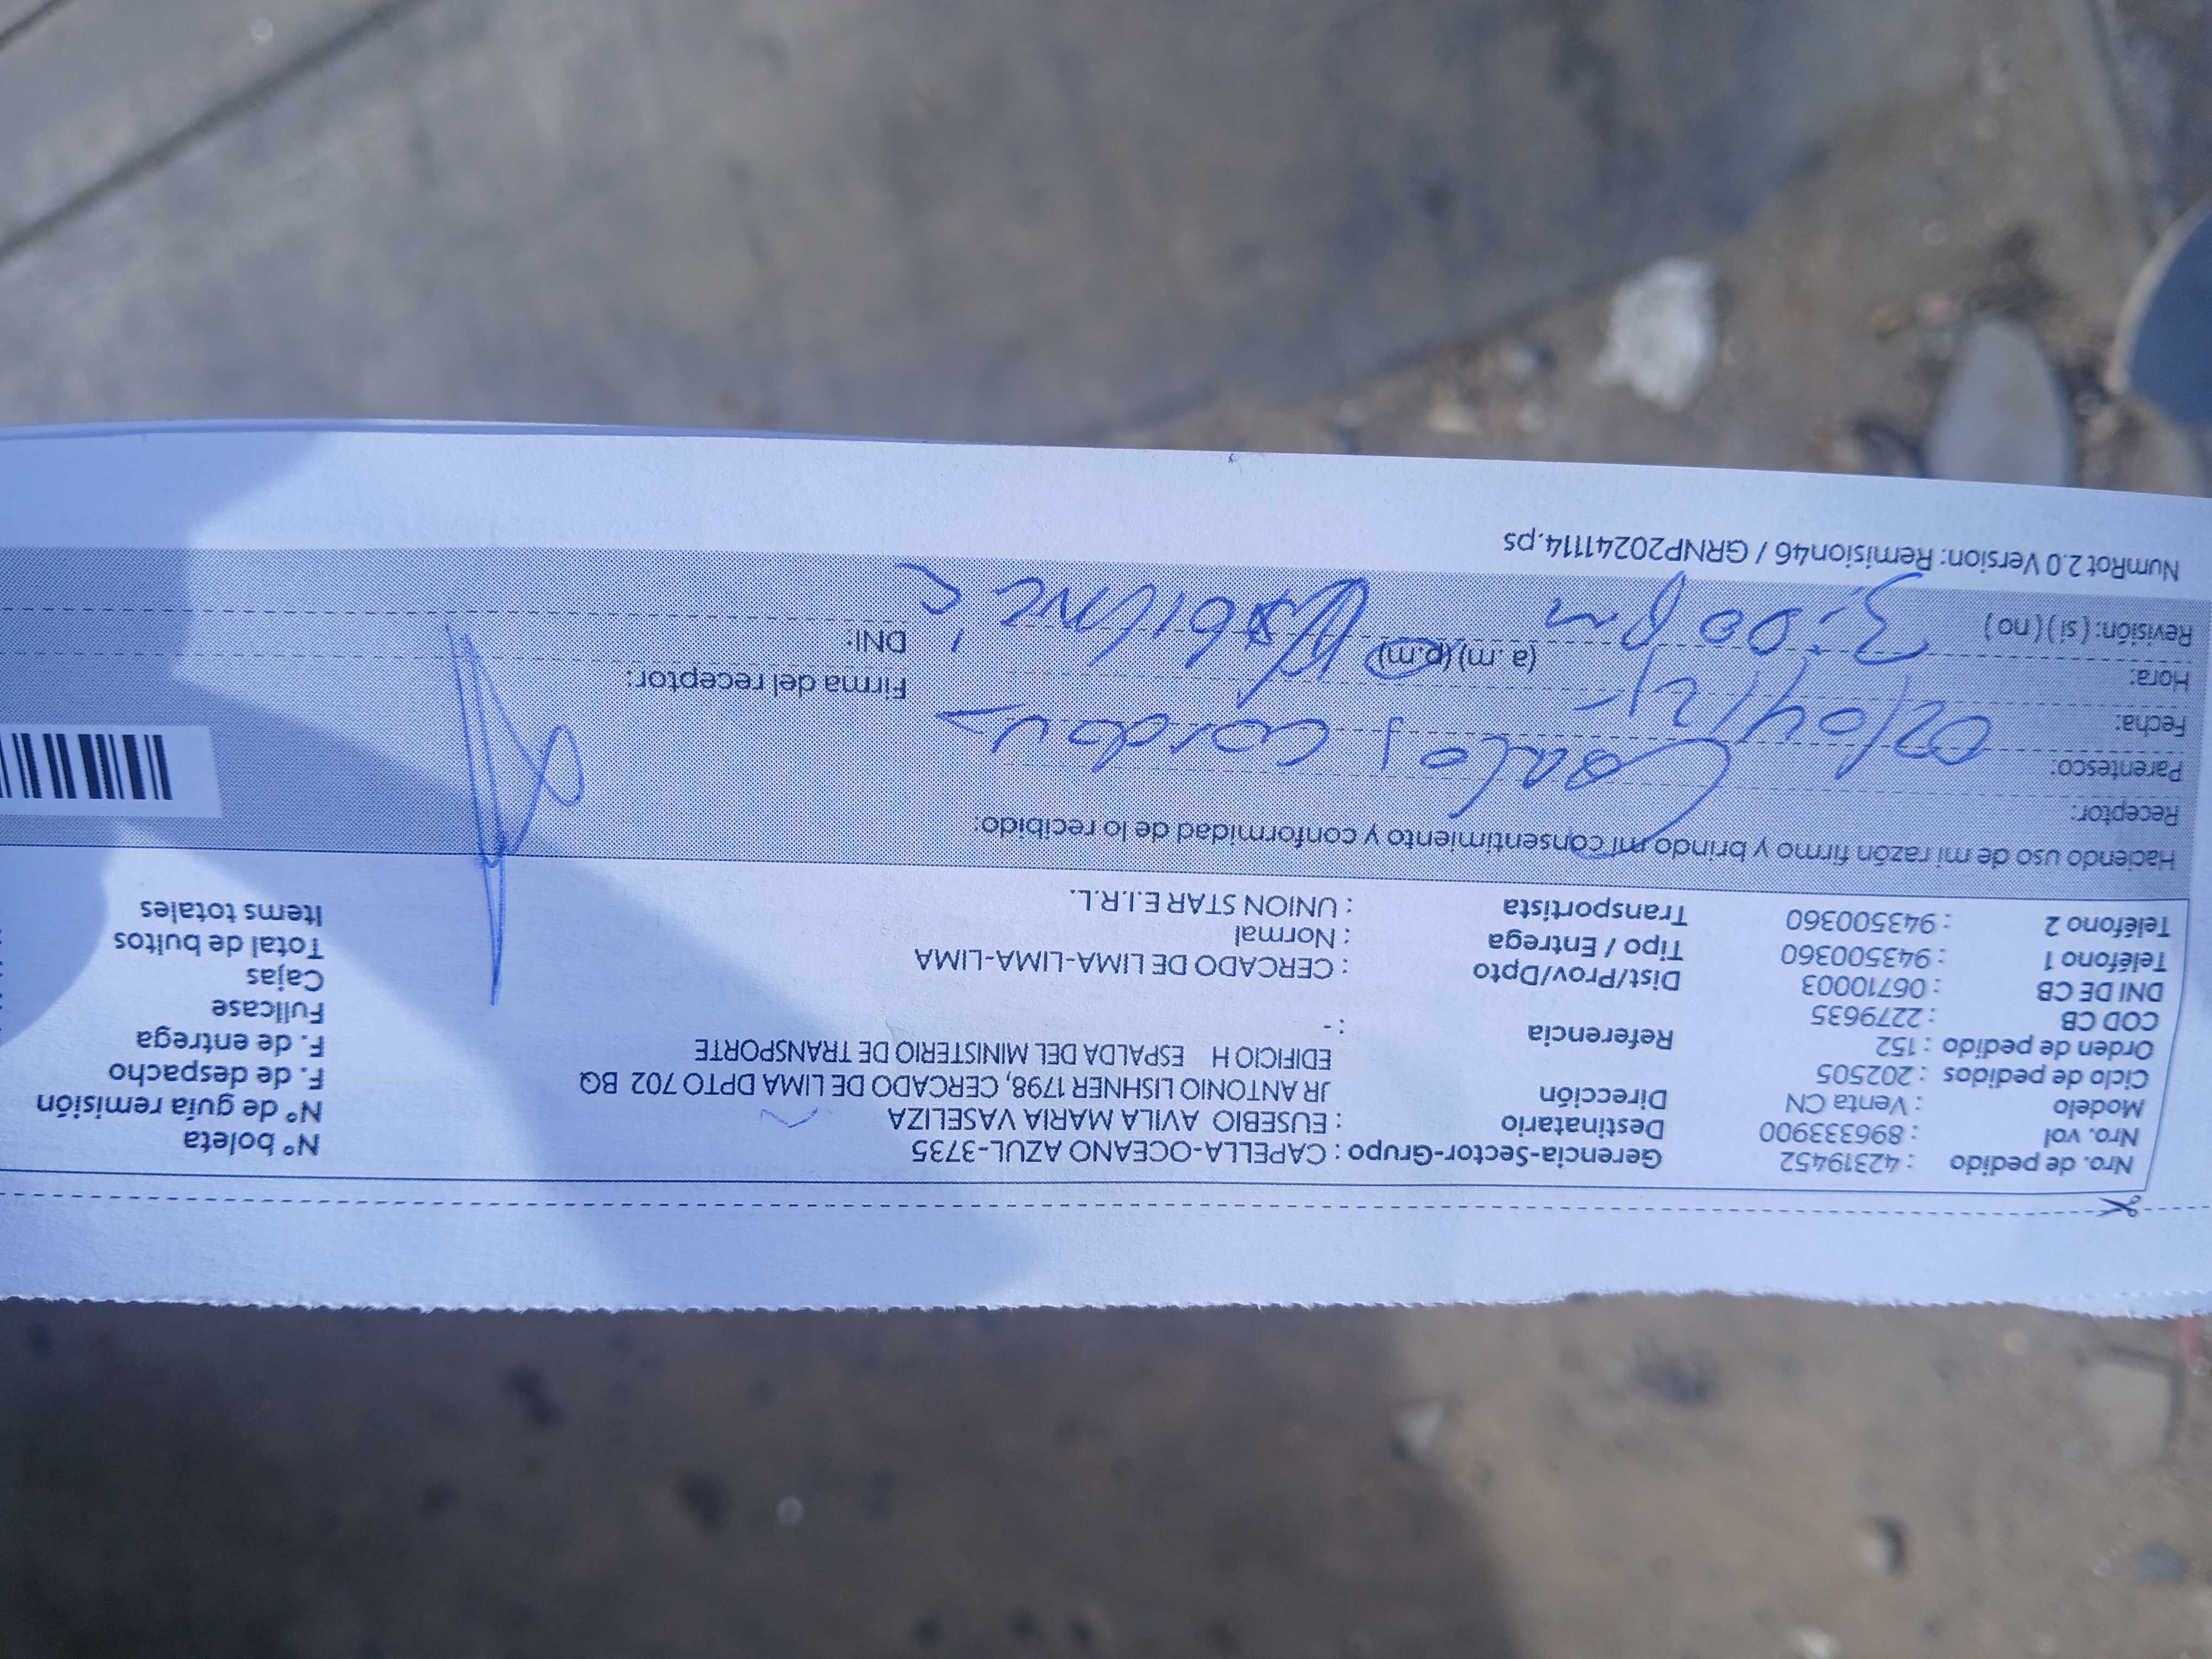 Nro. de pedido : 42319452 Gerencia-Sector-Grupo : CAPELLA-OCEANO AZUL-3735 N° boleta
Nro. vol : 896333900 Destinatario : EUSEBIO AVILA MARIA VASELIZA N° de guía remisión
Modelo : Venta CN Dirección JR ANTONIO LISHNER 1798, CERCADO DE LIMA DPTO 702 BQ F. de despacho
Ciclo de pedidos : 202505 EDIFICIO H ESPALDA DEL MINISTERIO DE TRANSPORTE F. de entrega
Orden de pedido : 152 Referencia : - Fullcase
COD CB : 2279635 Cajas
DNI DE CB : 06710003 Dist/Prov/Dpto : CERCADO DE LIMA-LIMA-LIMA Total de bultos
Teléfono 1 : 943500360 Tipo / Entrega : Normal Items totales
Teléfono 2 : 943500360 Transportista : UNION STAR E.I.R.L.
Haciendo uso de mi razón firmo y brindo mi consentimiento y conformidad de lo recibido:
Receptor: Carlos Cordova
Parentesco:
Fecha: 02/04/25 Firma del receptor:
Hora: 3:00 pm (a.m) (p.m) DNI:
Revisión: (si) (no)
NumRot 2.0 Version: Remision46 / GRNP20241114.ps